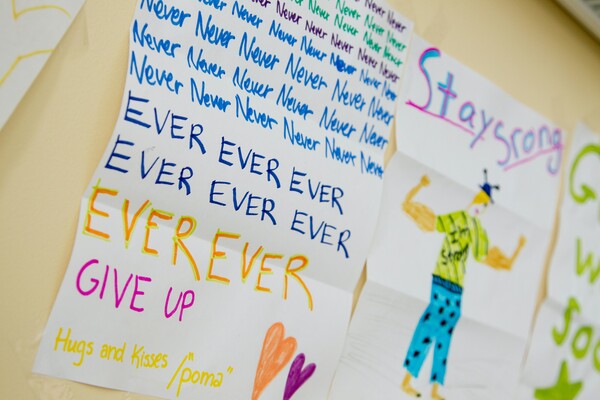 Never Never
Never Never Never
Never Never Never Never
Never Never Never Never Never Never
Never Never Never Never Never
Never Never Never Never Never
Never Never Never Never Never Never
EVER EVER EVER
EVER EVER EVER
EVER EVER
GIVE UP
Hugs and Kisses / "poma"
Stay srong
G
w
soo